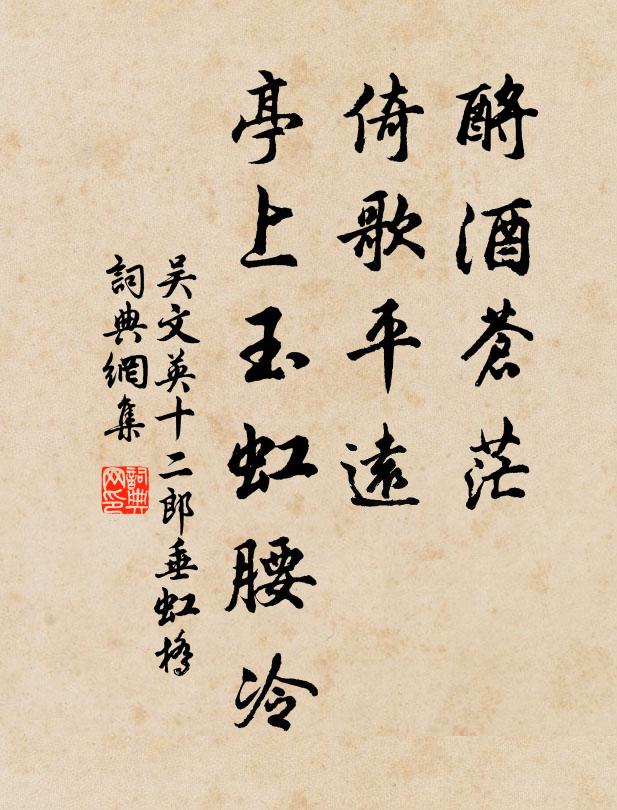 酹酒蒼茫
倚歌平遠
亭上玉虹腰冷
吴文英十二郎垂虹橋
詞典網集
詞典网印